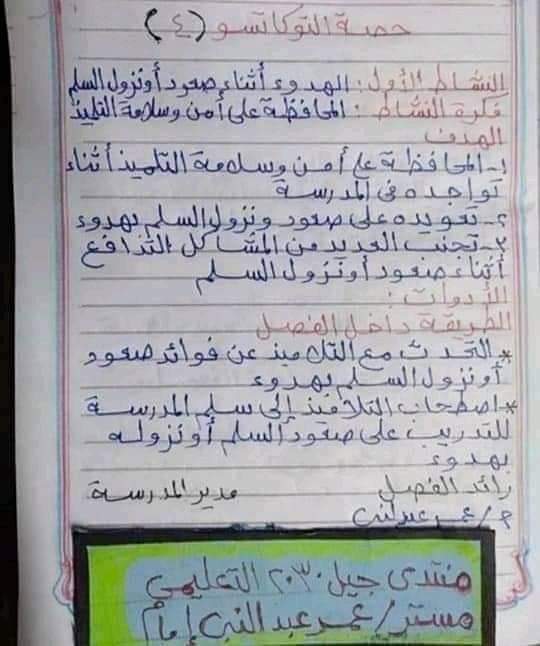 حصة التوكاتسو (٤)
النشاط الأول: الهدوء أثناء صعود أونزول السلم
فكرة النشاط: المحافظة على أمن وسلامة التلميذ
الهدف
١- المحافظة على أمن وسلامة التلميذ أثناء
تواجده فى المدرسة
٢- تعويده على صعود ونزول السلم بهدوء
٣- تجنب العديد من المشاكل التدافع
أثناء صعود أونزول السلم
الأدوات:
الطريقة داخل الفصل
* التحدث مع التلاميذ عن فوائد صعود
أونزول السلم بهدوء
* اصطحاب التلاميذ إلى سلم المدرسة
للتدريب على صعود السلم أونزوله
بهدوء
رائد الفصل مدير المدرسة
م/عمر عبدالنبى
منتدى جيل ٢٠٣٠ التعليمي
مستر/عمر عبدالنبى إمام